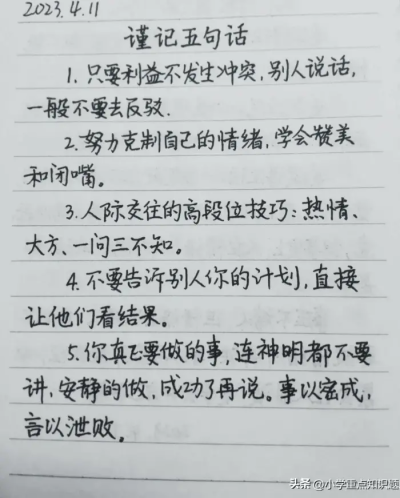 2023.4.11
谨记五句话
1.只要利益不发生冲突,别人说话,
一般不要去反驳.
2.努力克制自己的情绪,学会赞美
和闭嘴。
3.人际交往的高段位技巧:热情、
大方、一问三不知。
4.不要告诉别人你的计划,直接
让他们看结果。
5.你真正要做的事,连神明都不要
讲,安静的做,成功了再说。事以密成,
言以泄败。
头条@小学重点知识题